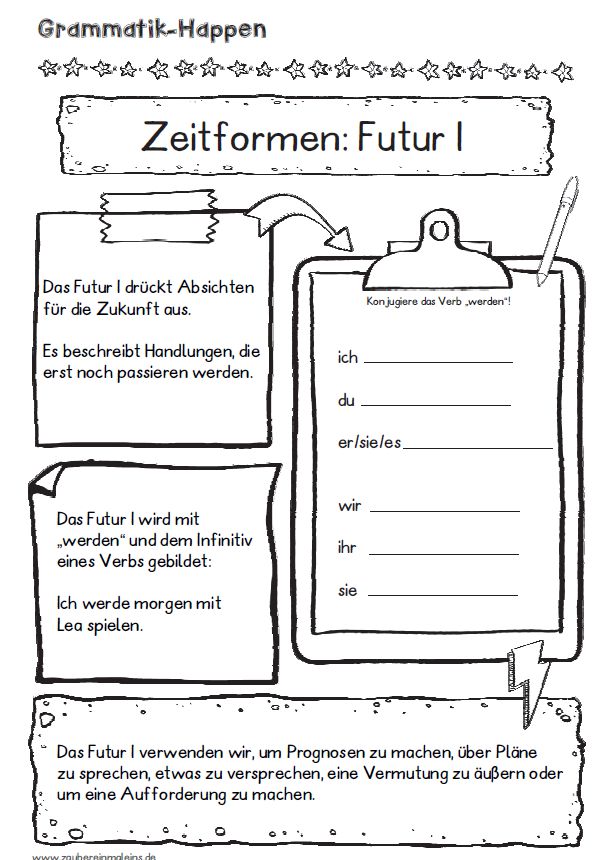 Grammatik-Happen
Zeitformen: Futur I
Das Futur I drückt Absichten
für die Zukunft aus.
Es beschreibt Handlungen, die
erst noch passieren werden.
Konjugiere das Verb „werden“!
ich
du
er/sie/es
wir
ihr
sie
Das Futur I wird mit
„werden“ und dem Infinitiv
eines Verbs gebildet:
Ich werde morgen mit
Lea spielen.
Das Futur I verwenden wir, um Prognosen zu machen, über Pläne
zu sprechen, etwas zu versprechen, eine Vermutung zu äußern oder
um eine Aufforderung zu machen.
www.zaubereinmaleins.de